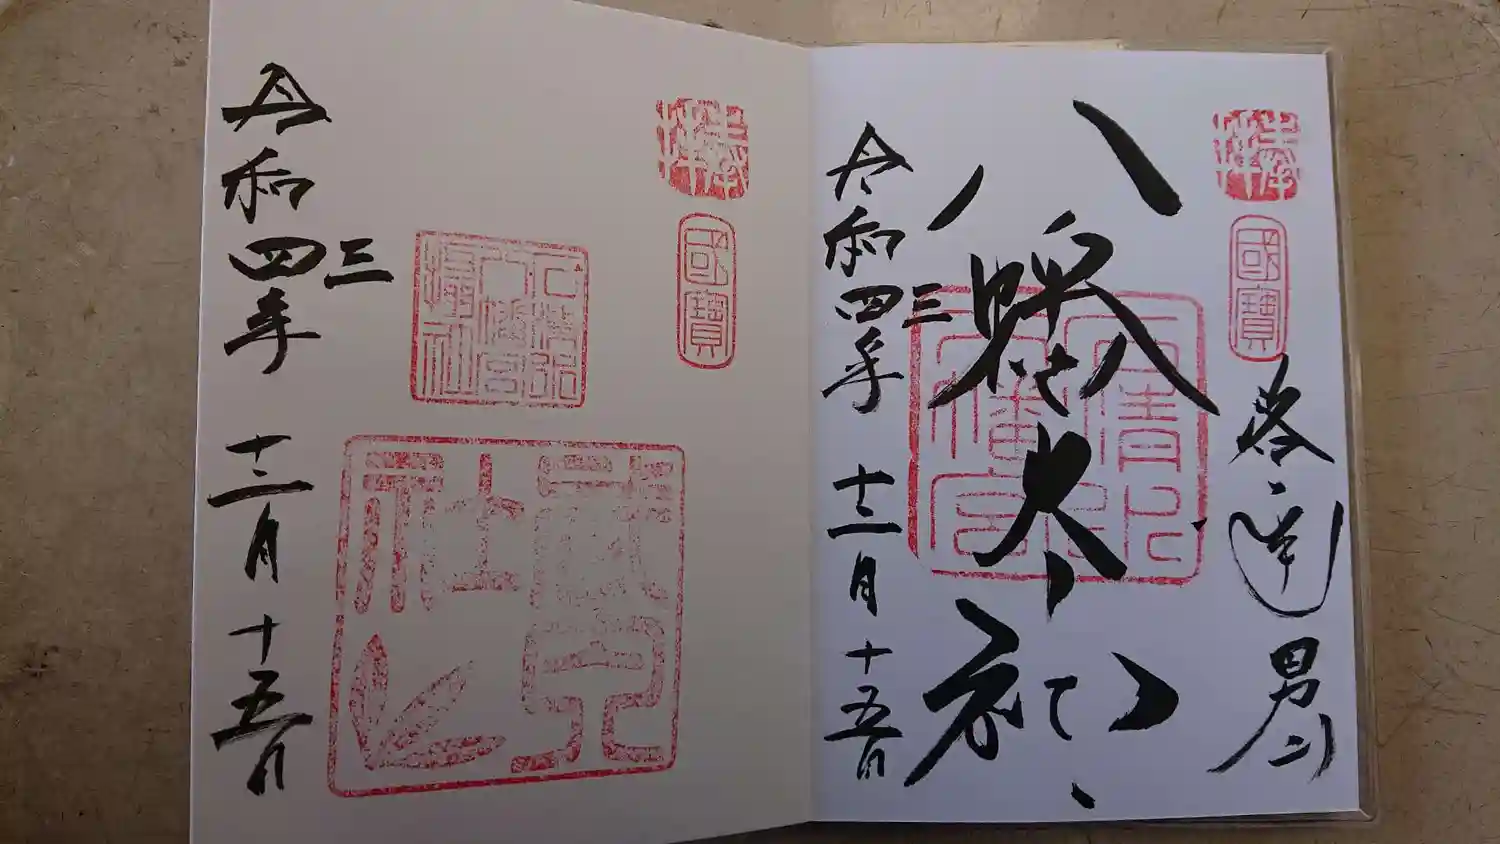 奉拝
國寶
男山
八幡大神
石清水
八幡宮
令和四年
三
十二月十五日
奉拝
國寶
石清水
八幡宮
攝社
令和四年
三
十二月十五日